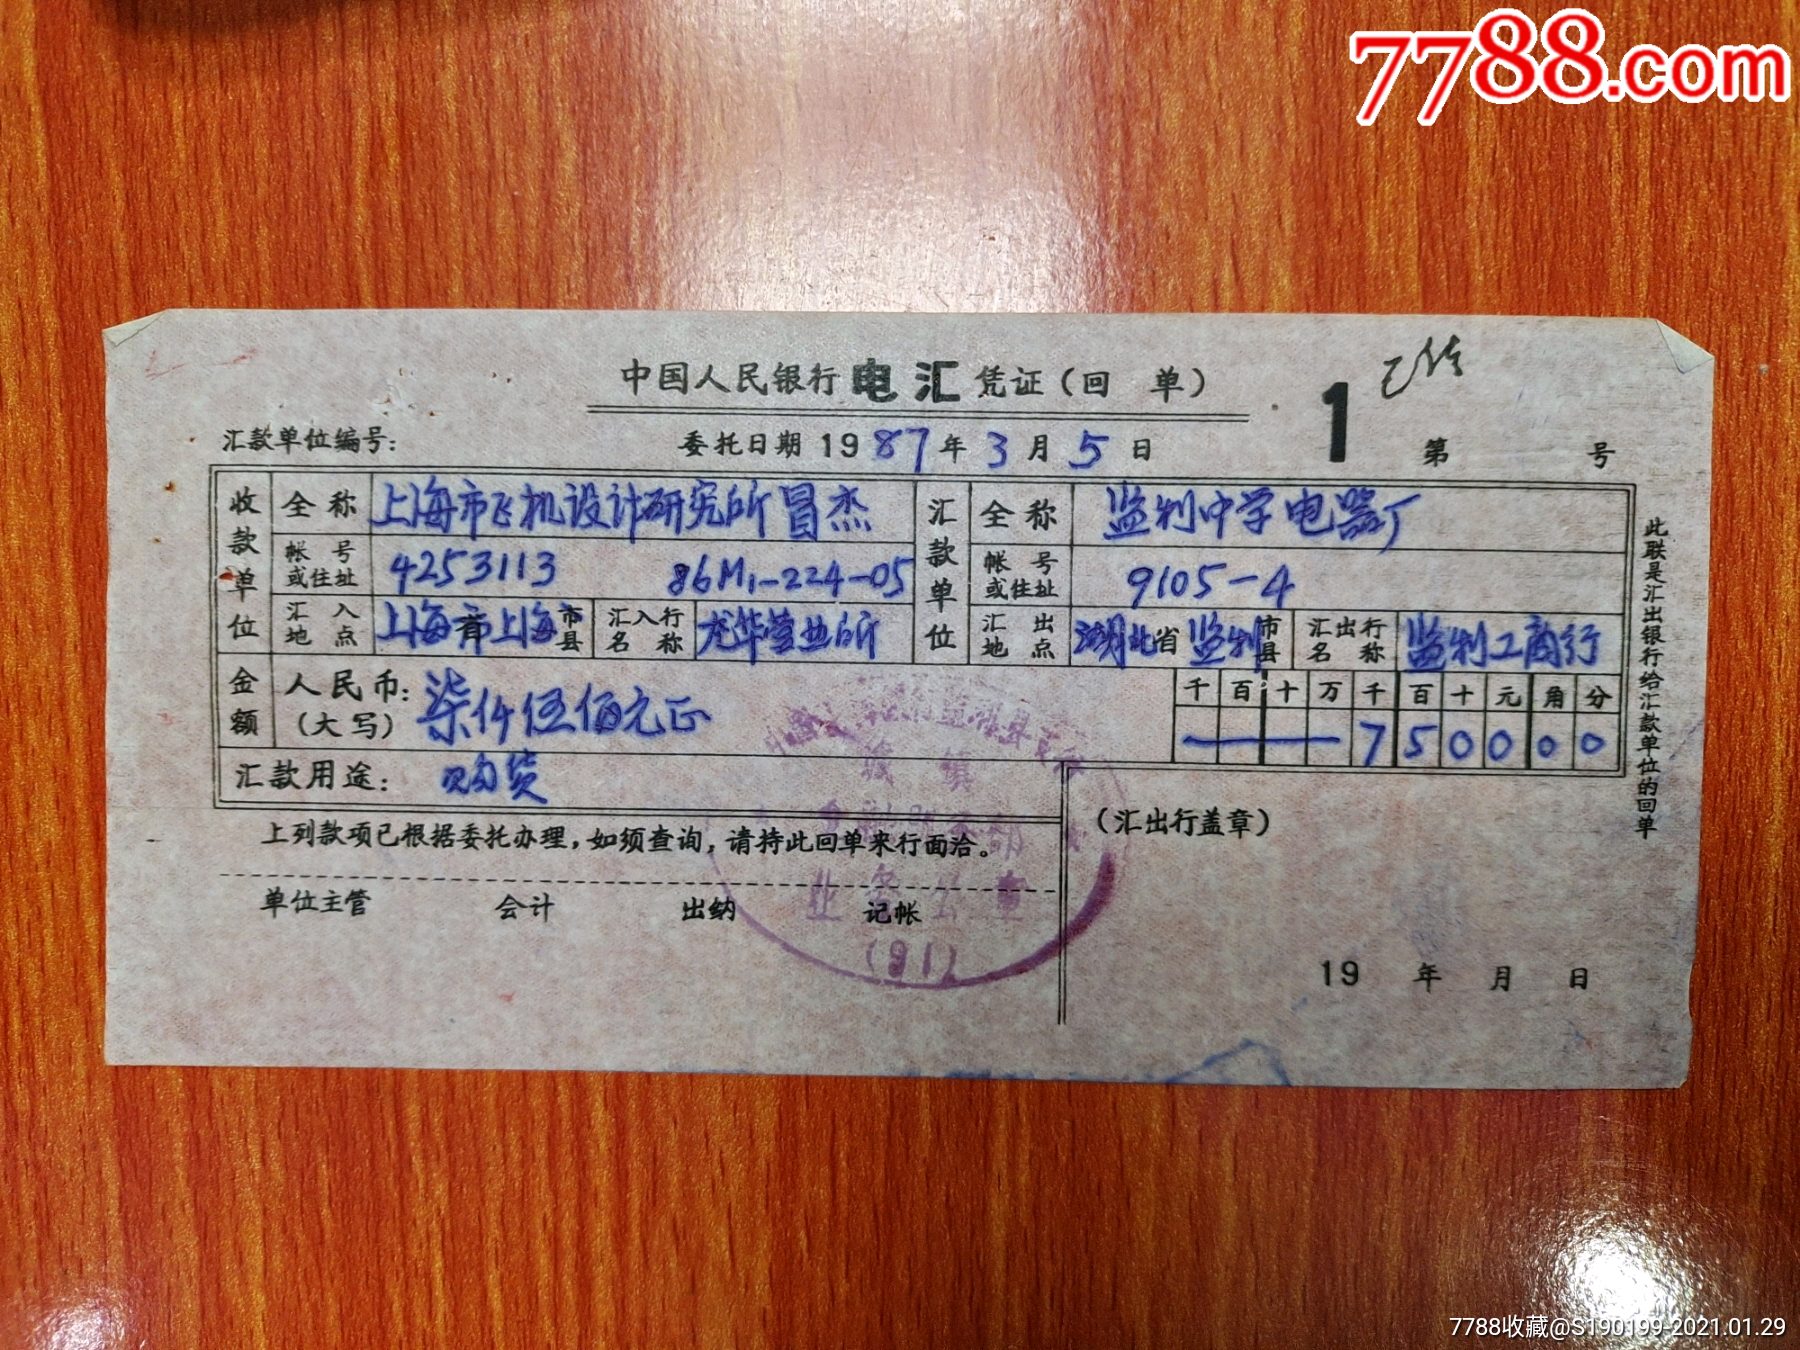 7788.com
中国人民银行电汇凭证(回 单)
1
已付
汇款单位编号:
委托日期1987年3月5日
第 号
收款单位
全称
上海市飞机设计研究所冒杰
汇款单位
全称
监利中学电器厂
帐号或住址
4253113 86M1-224-05
帐号或住址
9105-4
汇入地点
上海市上海市县
汇入行名称
龙华营业所
汇出地点
湖北省监利市县
汇出行名称
监利工商行
金额
人民币:(大写)
柒仟伍佰元正
千百十万千百十元角分
750000
汇款用途:购货
上列款项已根据委托办理,如须查询,请持此回单来行面洽。
(汇出行盖章)
单位主管 会计 出纳 记帐
业务公章
(91)
19 年 月 日
此联是汇出银行给汇款单位的回单
7788收藏@S190199-2021.01.29